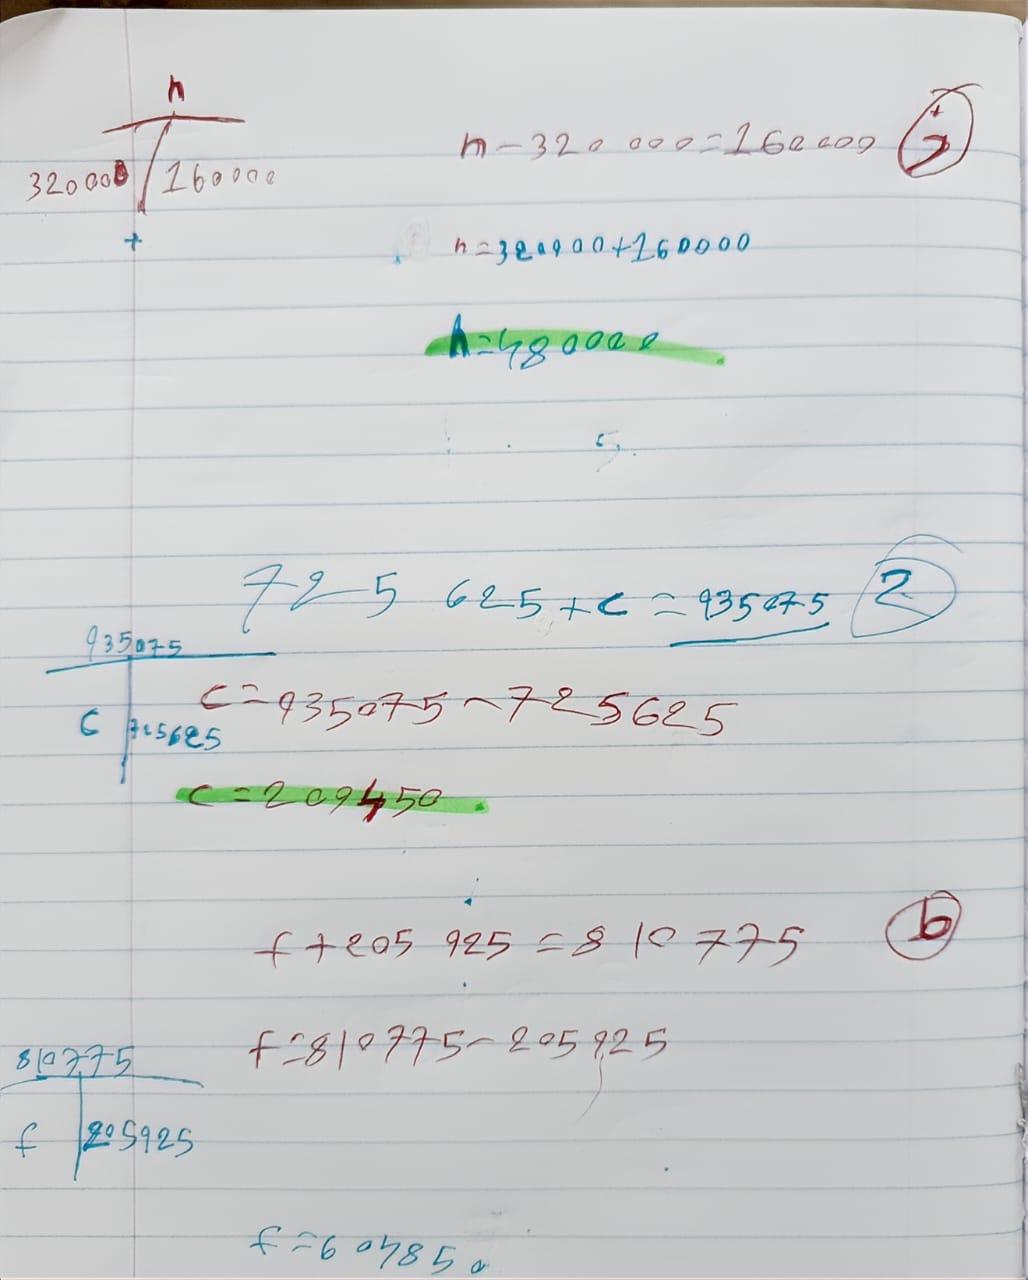 n
n-320 000=160000
320000 160000
+
n=320000+160000
n=480000
725 625+c=935075 2
935075
c=935075-725625
c 725625
c=209450
f+205 925=8 10 775 b
f=810775-205925
810775
f 205925
f=604850